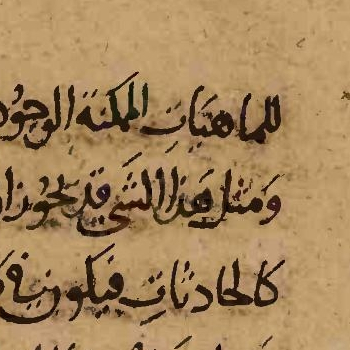 للماهيات الممكنة الوجود
ومثل هذا الشي قد يجوز ان
كالحادثات فيكون